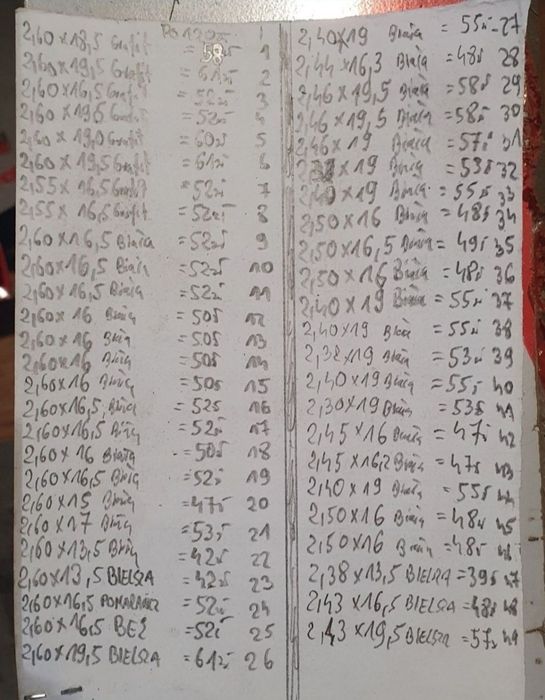 PO 120
2,60x18,5 Grafit = 58 1
2,60x19,5 Grafit = 61 2
2,60x16,5 Grafit = 52 3
2,60x = 52 4
2,60x 19,0 Grafit = 60 5
2,60x 19,5 Grafit = 61 6
2,55x 16,5 Grafit = 52 7
2,55x 16,5 Grafit = 52 8
2,60x16,5 Biała = 52 9
2,60x16,5 Biała = 52 10
2,60x16,5 Biała = 52 11
2,60x16 Biała = 50 12
2,60x16 Biała = 50 13
2,60x16 Biała = 50 14
2,60x16 Biała = 50 15
2,60x16,5 Biała = 52 16
2,60x16,5 Biała = 52 17
2,60x16 Biała = 50 18
2,60x16,5 Biała = 52 19
2,60x15 Biała = 47 20
2,60x17 Biała = 53 21
2,60x13,5 Biała = 42 22
2,60x13,5 BIELSZA = 42 23
2,60x16,5 POMARAŃCZ = 52 24
2,60x16,5 BEŻ = 52 25
2,60x19,5 BIELSZA = 61 26
2,40x19 Biała = 55 - 27
2,44x16,3 Biała = 48 28
2,46x19,5 Biała = 58 29
2,46x19,5 Biała = 58 30
2,46x19 Biała = 57 31
x19 Biała = 53 32
2,40x19 Biała = 55 33
2,50x16 Biała = 48 34
2,50x16,5 Biała = 49 35
2,50x16 Biała = 48 36
2,40x19 Biała = 55 37
2,40x19 Biała = 55 38
2,38x19 Biała = 53 39
2,40x19 Biała = 55 40
2,30x19 Biała = 53 41
2,45x16 Biała = 47 42
2,45x16,2 Biała = 47 43
2,40x19 Biała = 55 44
2,50x16 Biała = 48 45
2,50x16 Biała = 48 46
2,38x13,5 BIELSZA = 39 47
2,43x16,5 BIELSZA = 48 48
2,43x19,5 BIELSZA = 57 49